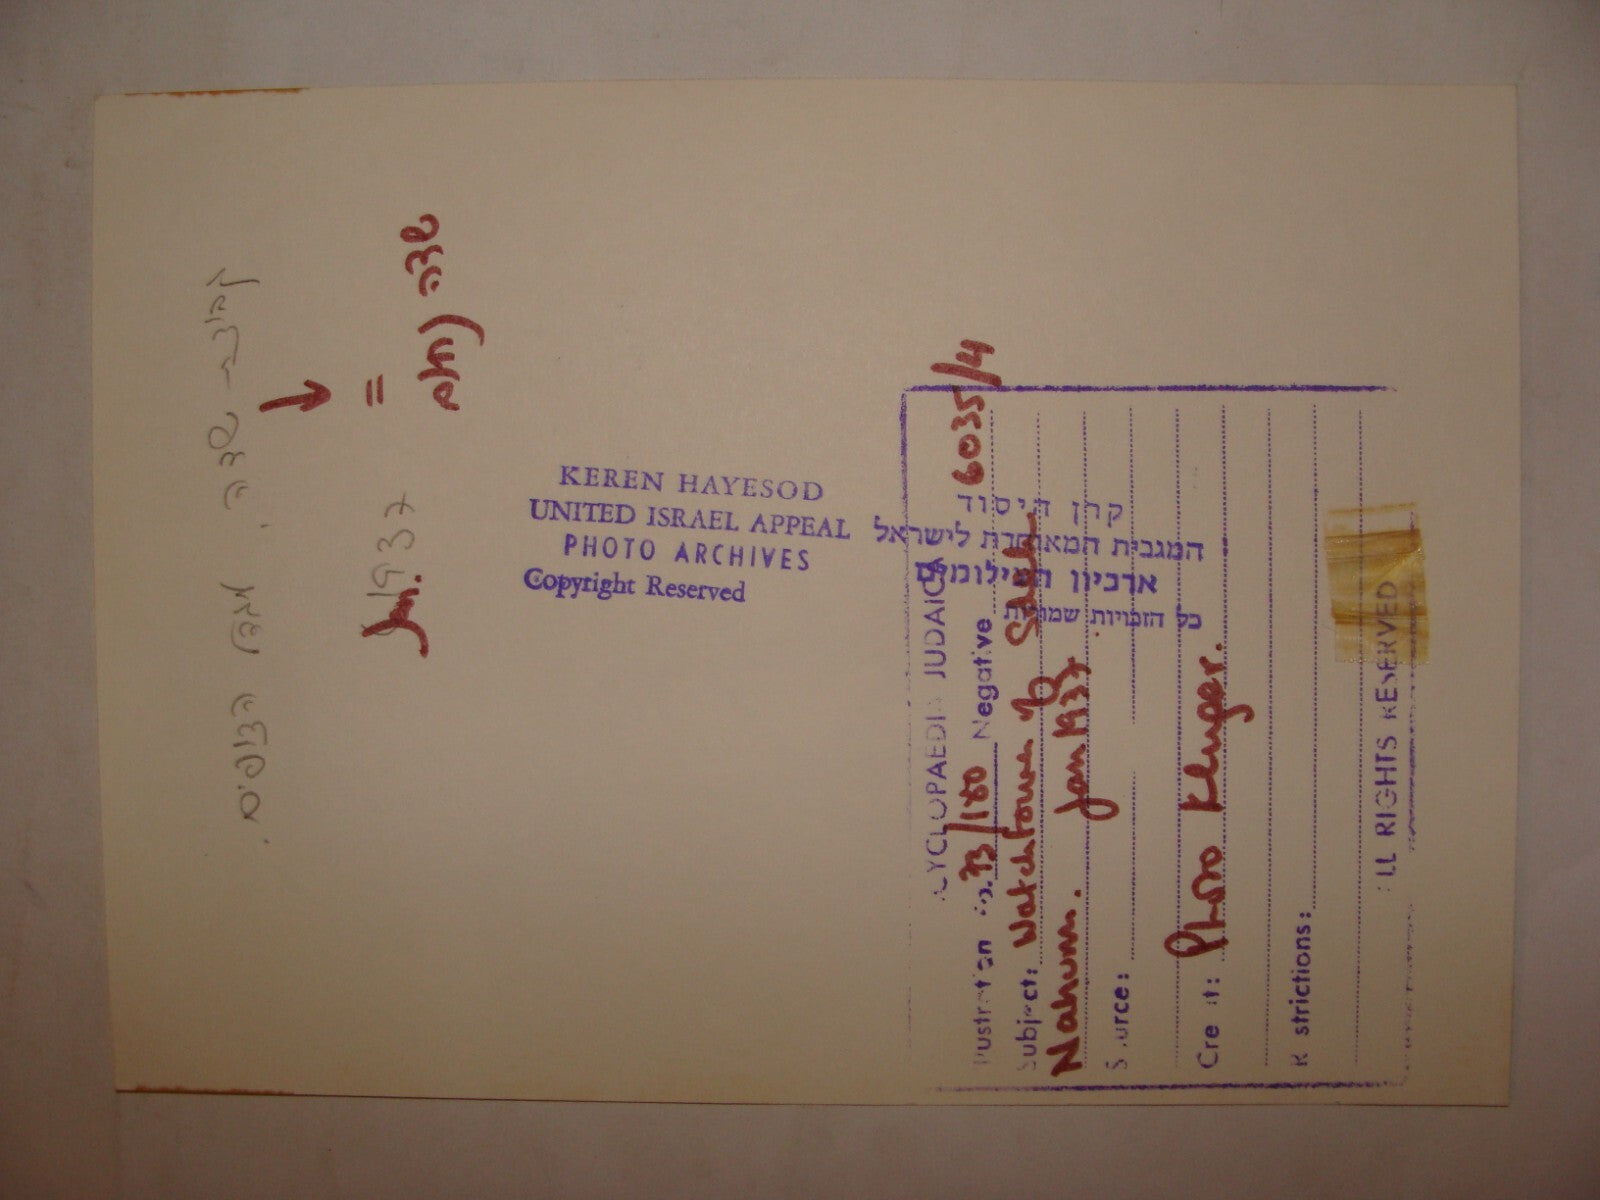 קבוצת שדה, מגדל הצופים.
1937
Jan.
=
שדה נחום
KEREN HAYESOD
UNITED ISRAEL APPEAL
PHOTO ARCHIVES
Copyright Reserved
קרן היסוד
המגבית המאוחדת לישראל
ארכיון הצילומים
כל הזכויות שמורות
CYCLOPAEDIA JUDAICA
6035/4
Illustration No. 33/180 Negative
Subject: Watchtower of Sdeh
Nahum. Jan 1937
Source:
Credit: Photo Kluger.
Restrictions:
ALL RIGHTS RESERVED